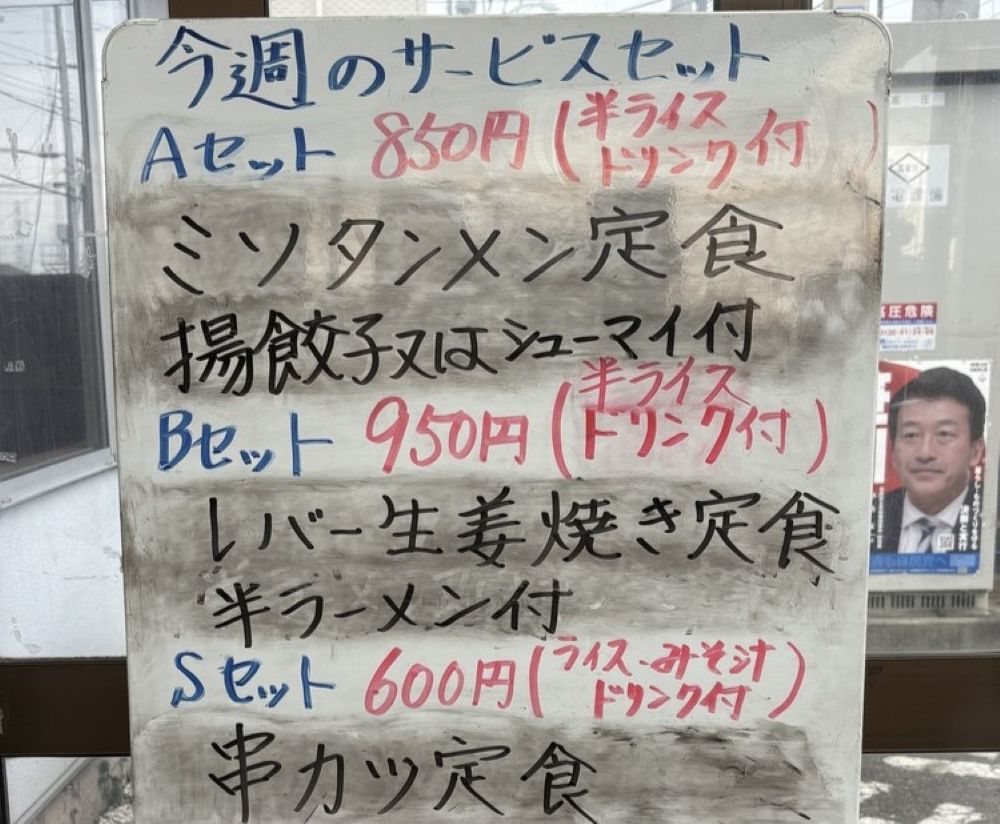 今週のサービスセット
Aセット 850円(半ライス
ドリンク付)
ミソタンメン定食
揚餃子又はシューマイ付
Bセット 950円(半ライス
ドリンク付)
レバー生姜焼き定食
半ラーメン付
Sセット 600円(ライス・みそ汁
ドリンク付)
串カツ定食
高圧危険